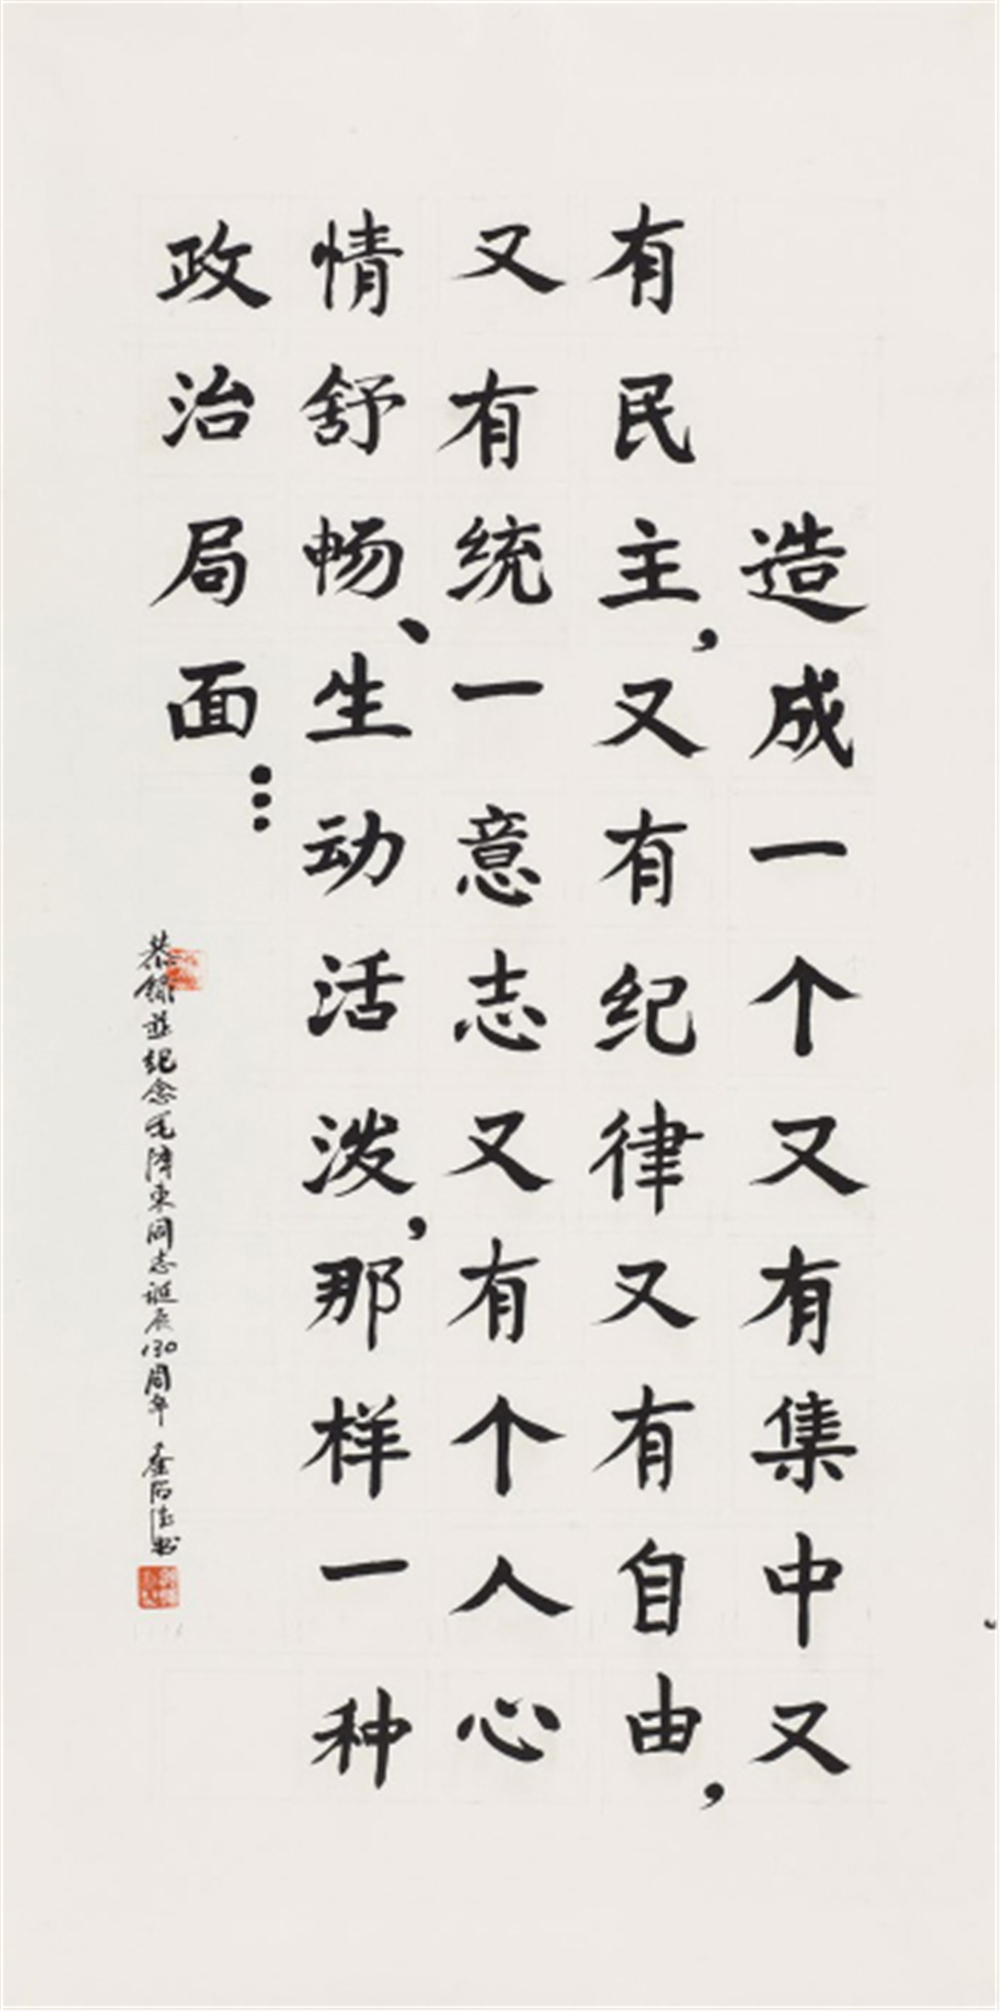 造成一个又有集中又
有民主，又有纪律又有自由，
又有统一意志又有个人心
情舒畅、生动活泼，那样一种
政治局面…
恭录并纪念毛泽东同志诞辰130周年